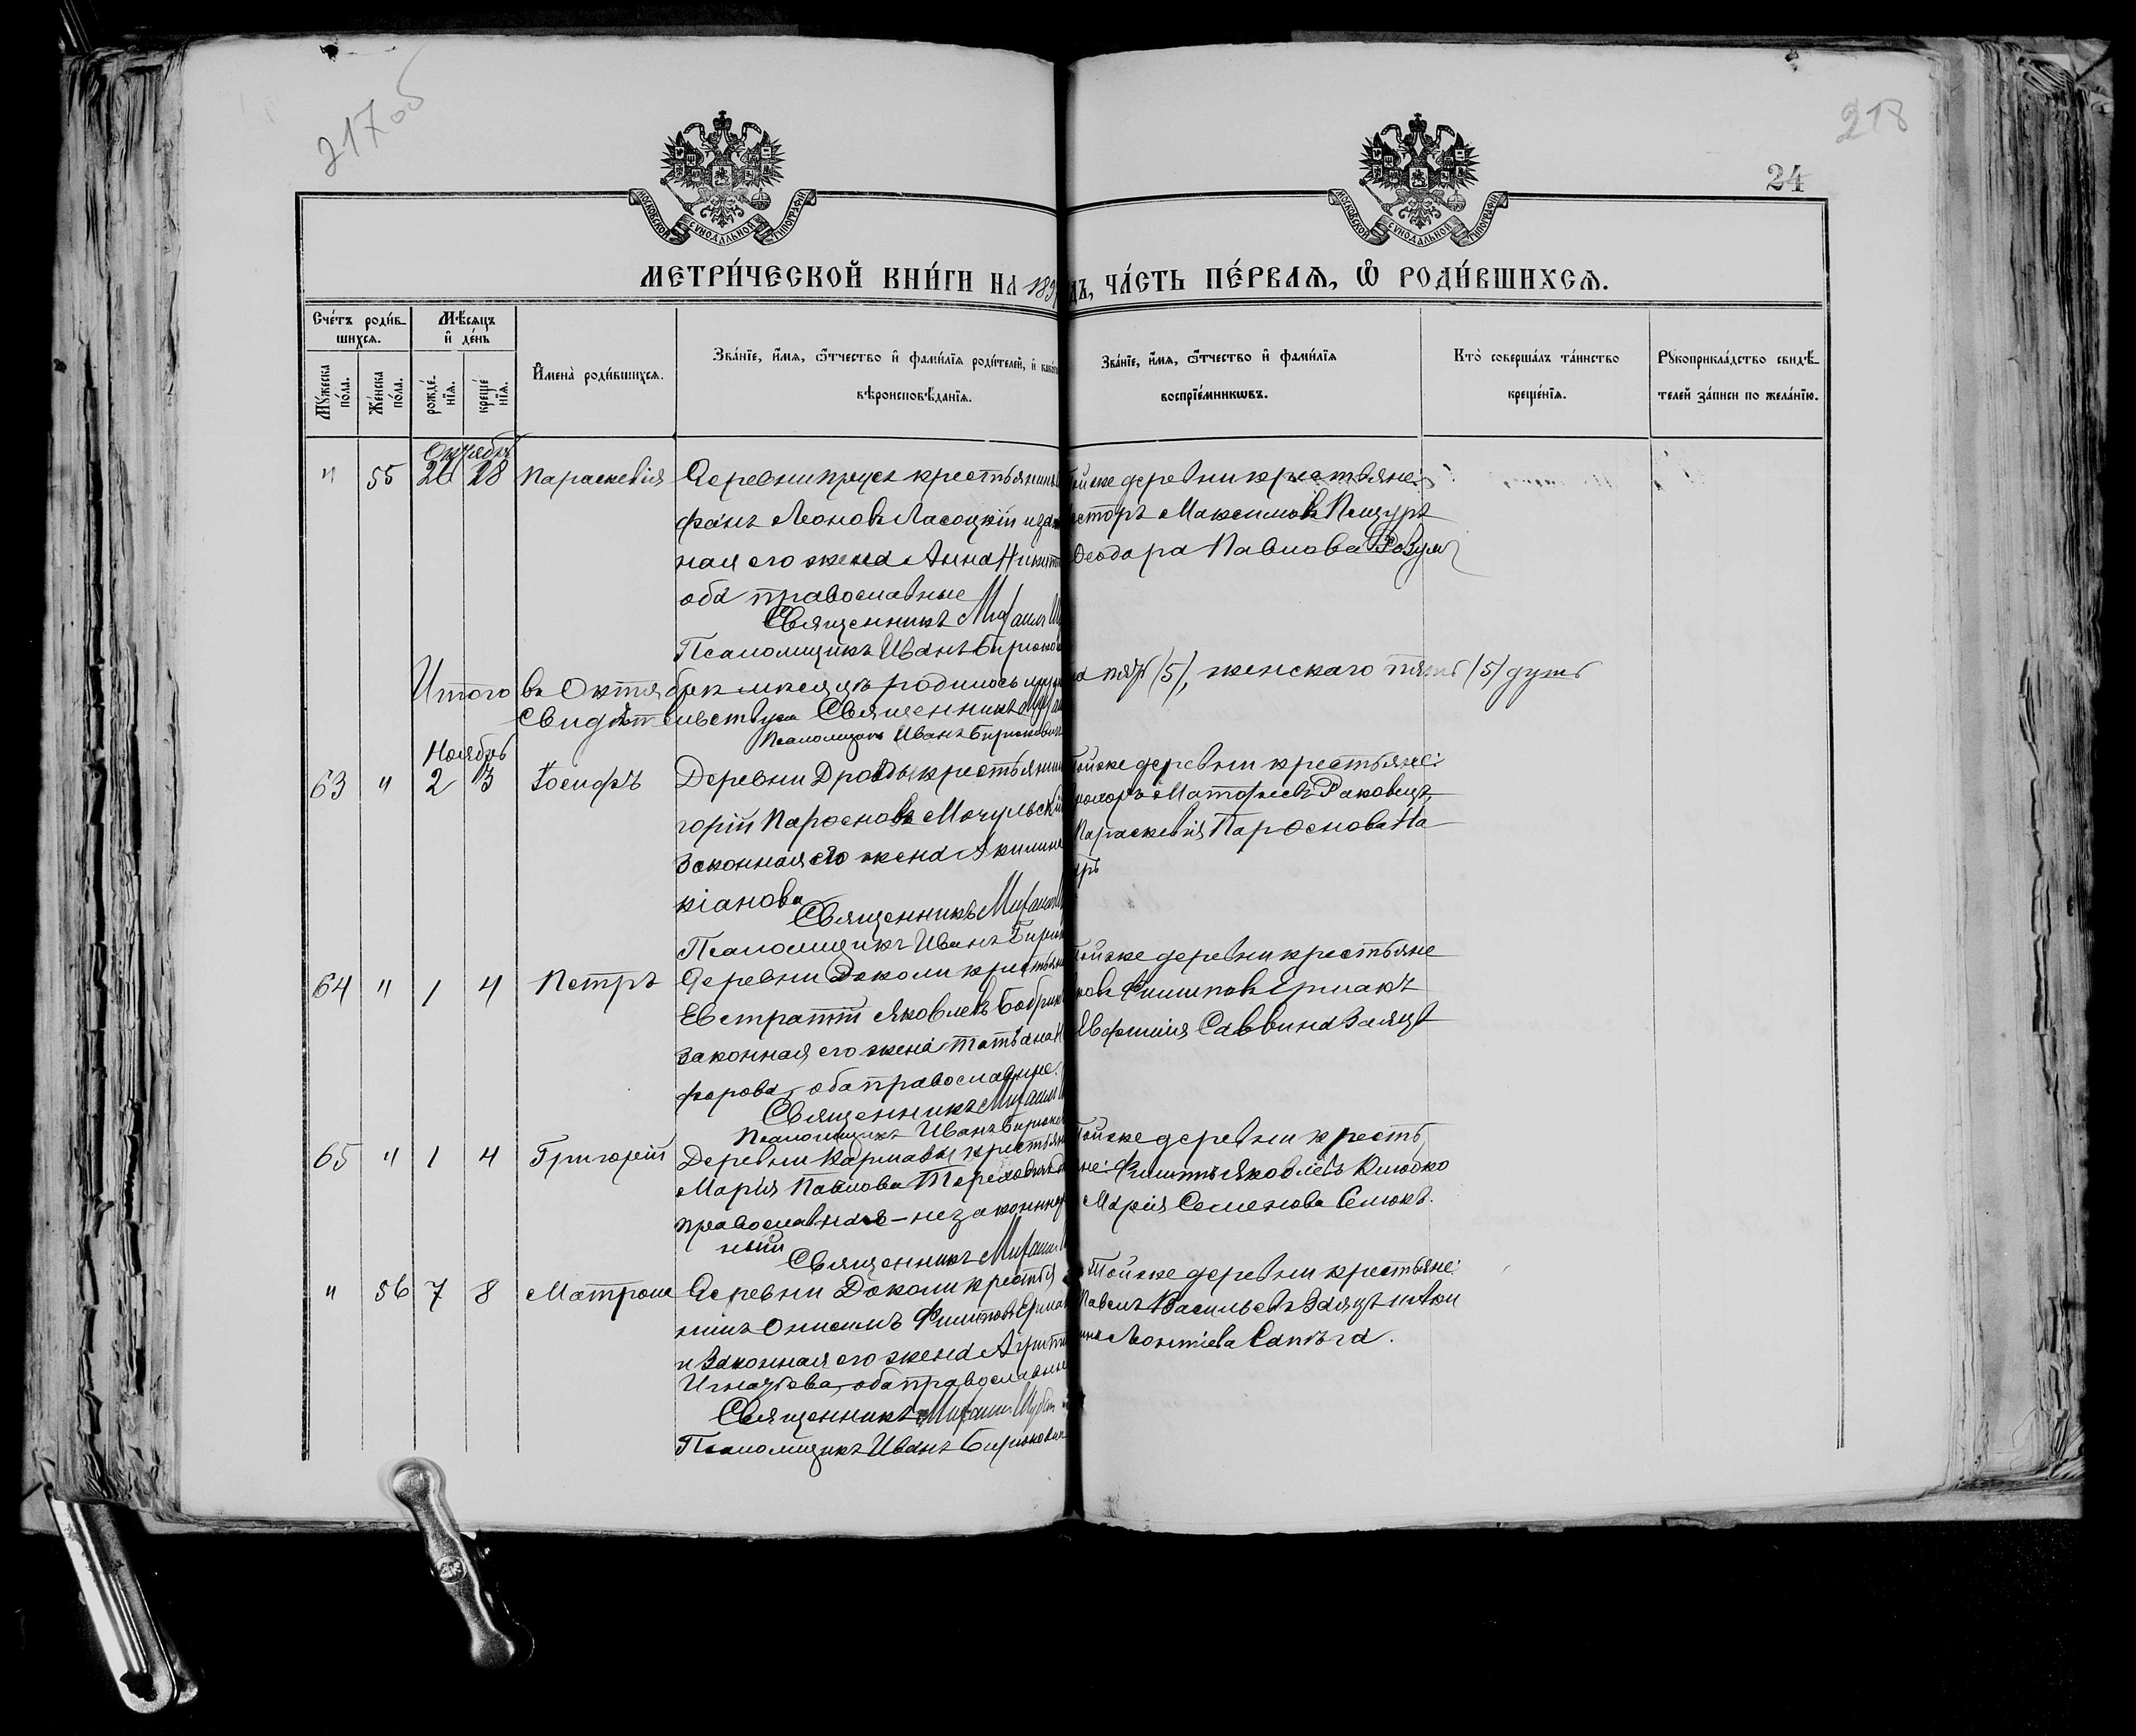 217об
218
24
МОСКОВСКОЙ СУНОДАЛЬНОЙ ТИПОГРАФІИ
МОСКОВСКОЙ СУНОДАЛЬНОЙ ТИПОГРАФІИ
МЕТРИ́ЧЕСКОЙ КНИ́ГИ НА 189 ДЪ, ЧА́СТЬ ПЕ́РВАѦ, Ѡ҆ РОДИ́ВШИХСѦ.
Сче́тъ роди́вшихсѧ.
Мꙋ́жеска по́ла.
Же́нска по́ла.
Мѣ́сѧцъ и҆ де́нь
рожде́нїѧ.
креще́нїѧ.
И҆мена̀ роди́вшихсѧ.
Зва́нїе, и҆́мѧ, ѻ҆́тчество и҆ фами́лїѧ роди́телей, и҆
вѣроисповѣ́данїѧ.
Зва́нїе, и҆́мѧ, ѻ҆́тчество и҆ фами́лїѧ
воспрїе́мникѡвъ.
Кто̀ соверша́лъ та́инство
креще́нїѧ.
Рꙋкоприкла́дство свидѣ́телей за́писи по жела́нїю.
Октябрь
" 55 26 28 Параскевія Деревни крестьянинъ
фанъ Леоновъ Ласоцкій и
ная его жена Анна Никит
оба православные
Священникъ Михаилъ
Псаломщикъ Иванъ Бирюков
тойже деревни крестьяне:
Несторъ Максимовъ Пещуръ
Ѳеодора Павлова
Итого въ Октябрѣ мѣсяцѣ родилось
на пять /5/, женскаго пять /5/ душъ
Свидѣтельствуем Священникъ
Псаломщикъ Иванъ Бирюкович
Ноябрь
63 " 2 3 Іосифъ Деревни Дрозды крестьянин
горій Парѳеновъ Мочульскій
законная его жена Акилина
кіанова
Священникъ Михаилъ
Псаломщикъ Иванъ Бирюк
Тойже деревни крестьяне:
Матѳеевъ Раковецъ,
Параскевія Парѳенова
64 " 1 4 Петръ Деревни Доколи крестьян
Евстратій Яковлевъ Бобрик
законная его жена Татіана
форова, оба православные.
Священникъ Михаилъ
Псаломщикъ Иванъ Бирюков
Тойже деревни крестьяне
ковъ Филиповъ Ермакъ
Евфимія Саввина Заяцъ
65 " 1 4 Григорій Деревни Кармазы крестьян
Марія Павлова
православная - незаконно
ный
Священникъ Михаилъ
Тойже деревни крестья
не: Филиппъ Яковлевъ Клюдко
Марія Семенова Семюкъ.
" 56 7 8 Матрона Деревни Доколи крестья
нинъ Онисимъ Филиповъ Ермак
и законная его жена Агрипп
Игнатьева, оба православные
Священникъ Михаилъ
Псаломщикъ Иванъ Бирюкович
Тойже деревни крестьяне:
Павелъ Васильевъ Заяцъ и Аки
лина Леонтіева Сапѣга.